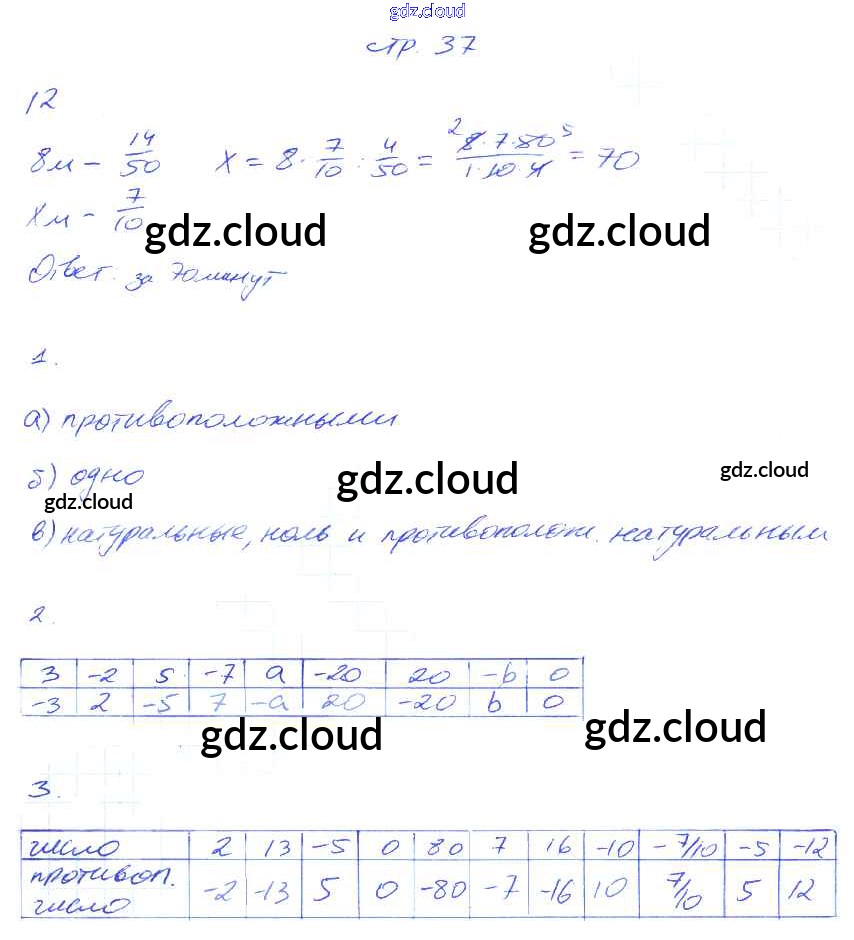 gdz.cloud
стр. 37
12
8м - 14/50 x = 8 · 7/10 : 4/50 = 2 8·7·80 5 / 1·10·4 = 70
xм - 7/10
gdz.cloud gdz.cloud
Ответ: за 70 минут
1.
а) противоположными
б) одно gdz.cloud gdz.cloud
gdz.cloud
в) натуральные, ноль и противополож. натуральным
2.
3 -2 5 -7 a -20 20 -b 0
-3 2 -5 7 -a 20 -20 b 0
gdz.cloud gdz.cloud
3.
число 2 13 -5 0 80 7 16 -10 -7/10 -5 -12
противоп. число -2 -13 5 0 -80 -7 -16 10 7/10 5 12